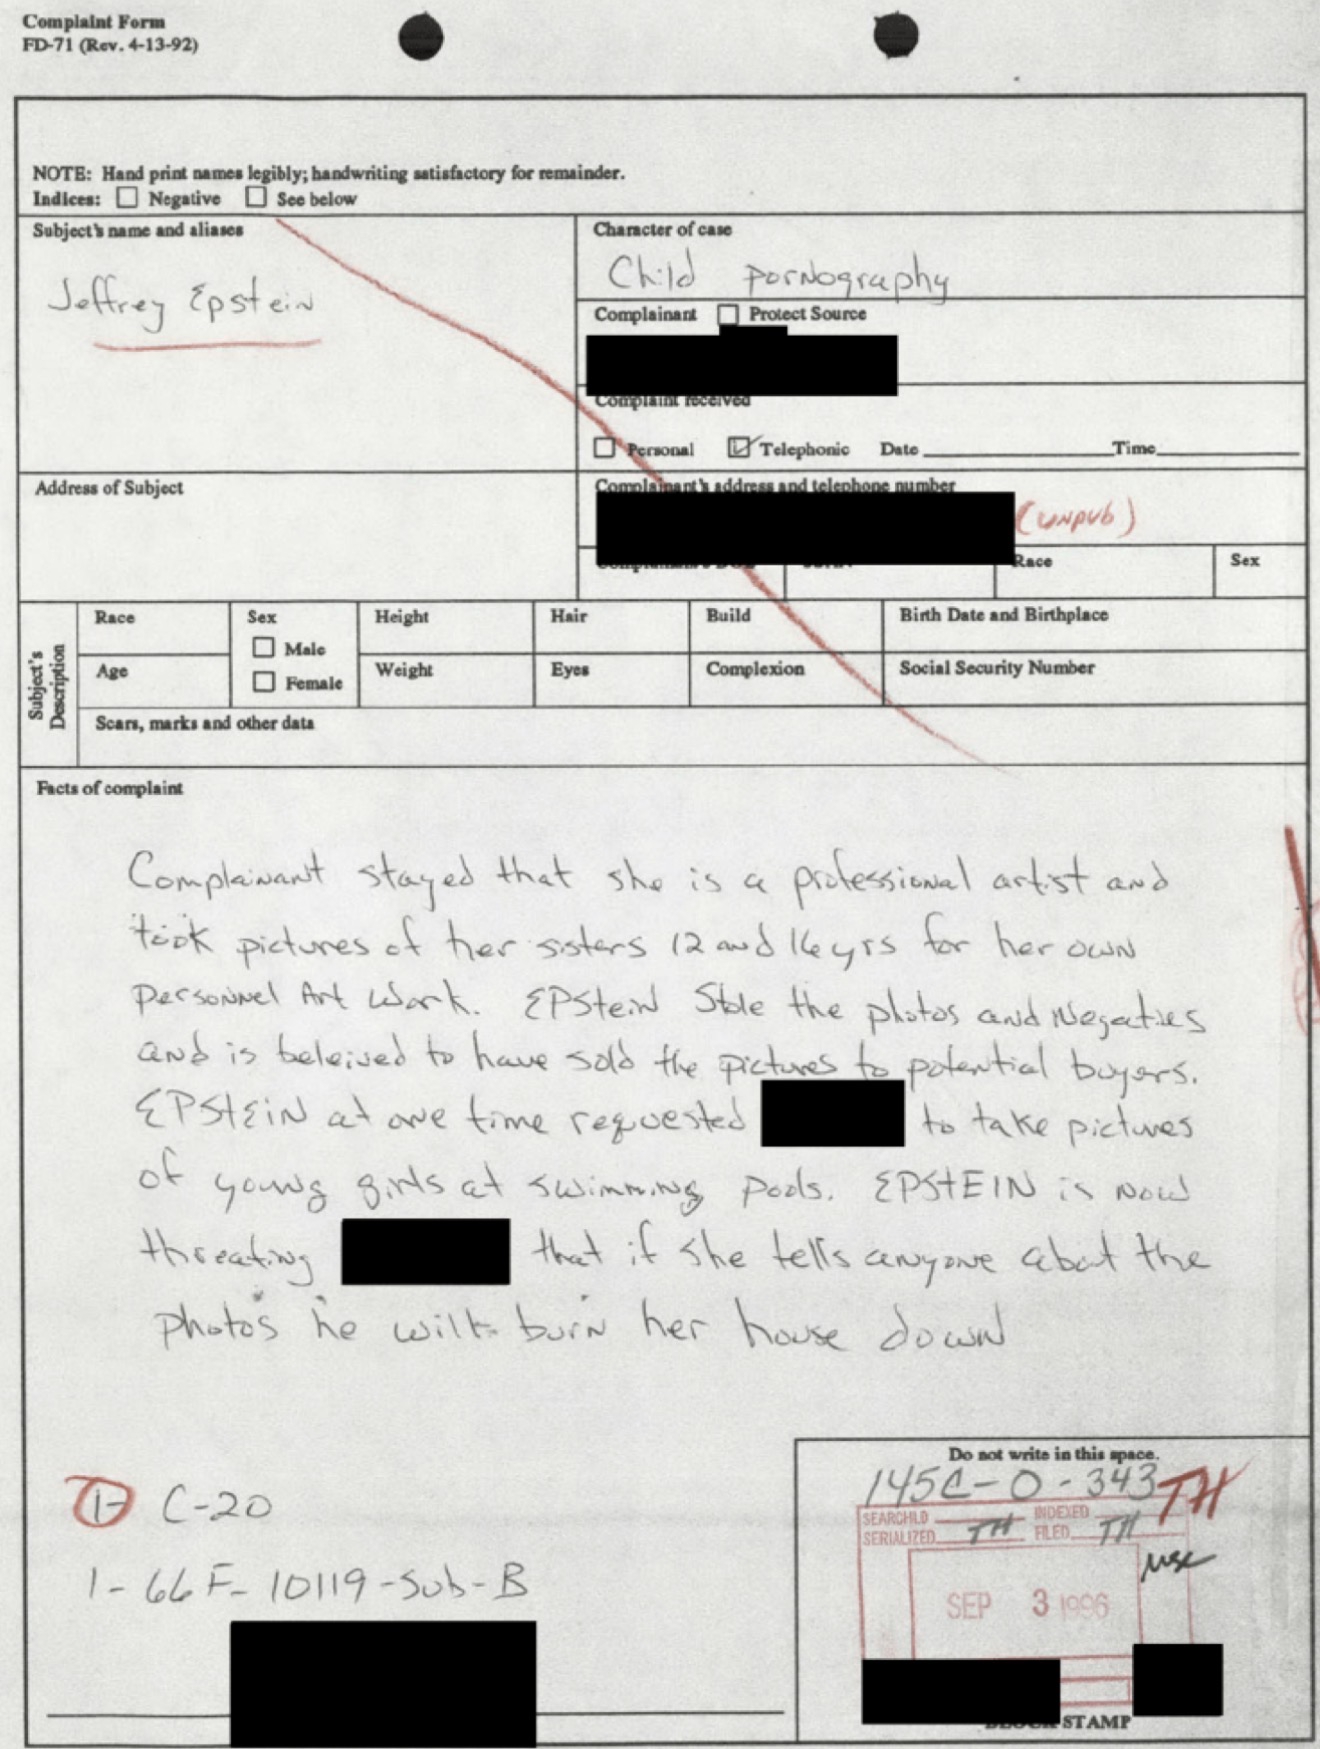 Complaint Form
FD-71 (Rev. 4-13-92)
NOTE: Hand print names legibly; handwriting satisfactory for remainder.
Indices: Negative See below
Subject's name and aliases
Jeffrey Epstein
Character of case
Child pornography
Complainant Protect Source
Complaint received
Personal Telephonic Date Time
Address of Subject
Complainant's address and telephone number
(unpub)
Race
Sex
Subject's
Description
Race
Sex
Male
Female
Height
Hair
Build
Birth Date and Birthplace
Age
Weight
Eyes
Complexion
Social Security Number
Scars, marks and other data
Facts of complaint
Complainant stayed that she is a professional artist and
took pictures of her sisters 12 and 16 yrs for her own
personnel Art Work. EPStein Stole the photos and Negatives
and is beleived to have sold the pictures to potential buyers.
EPStEiN at one time requested to take pictures
of young girls at swimming pools. EPStEIN is now
threating that if she tells anyone about the
photos he will burn her house down
1- C-20
1- 66F- 10119-Sub-B
Do not write in this space.
145C-0-343 TH
SEARCHED INDEXED
SERIALIZED TH FILED TH
SEP 3 1996
BLOCK STAMP